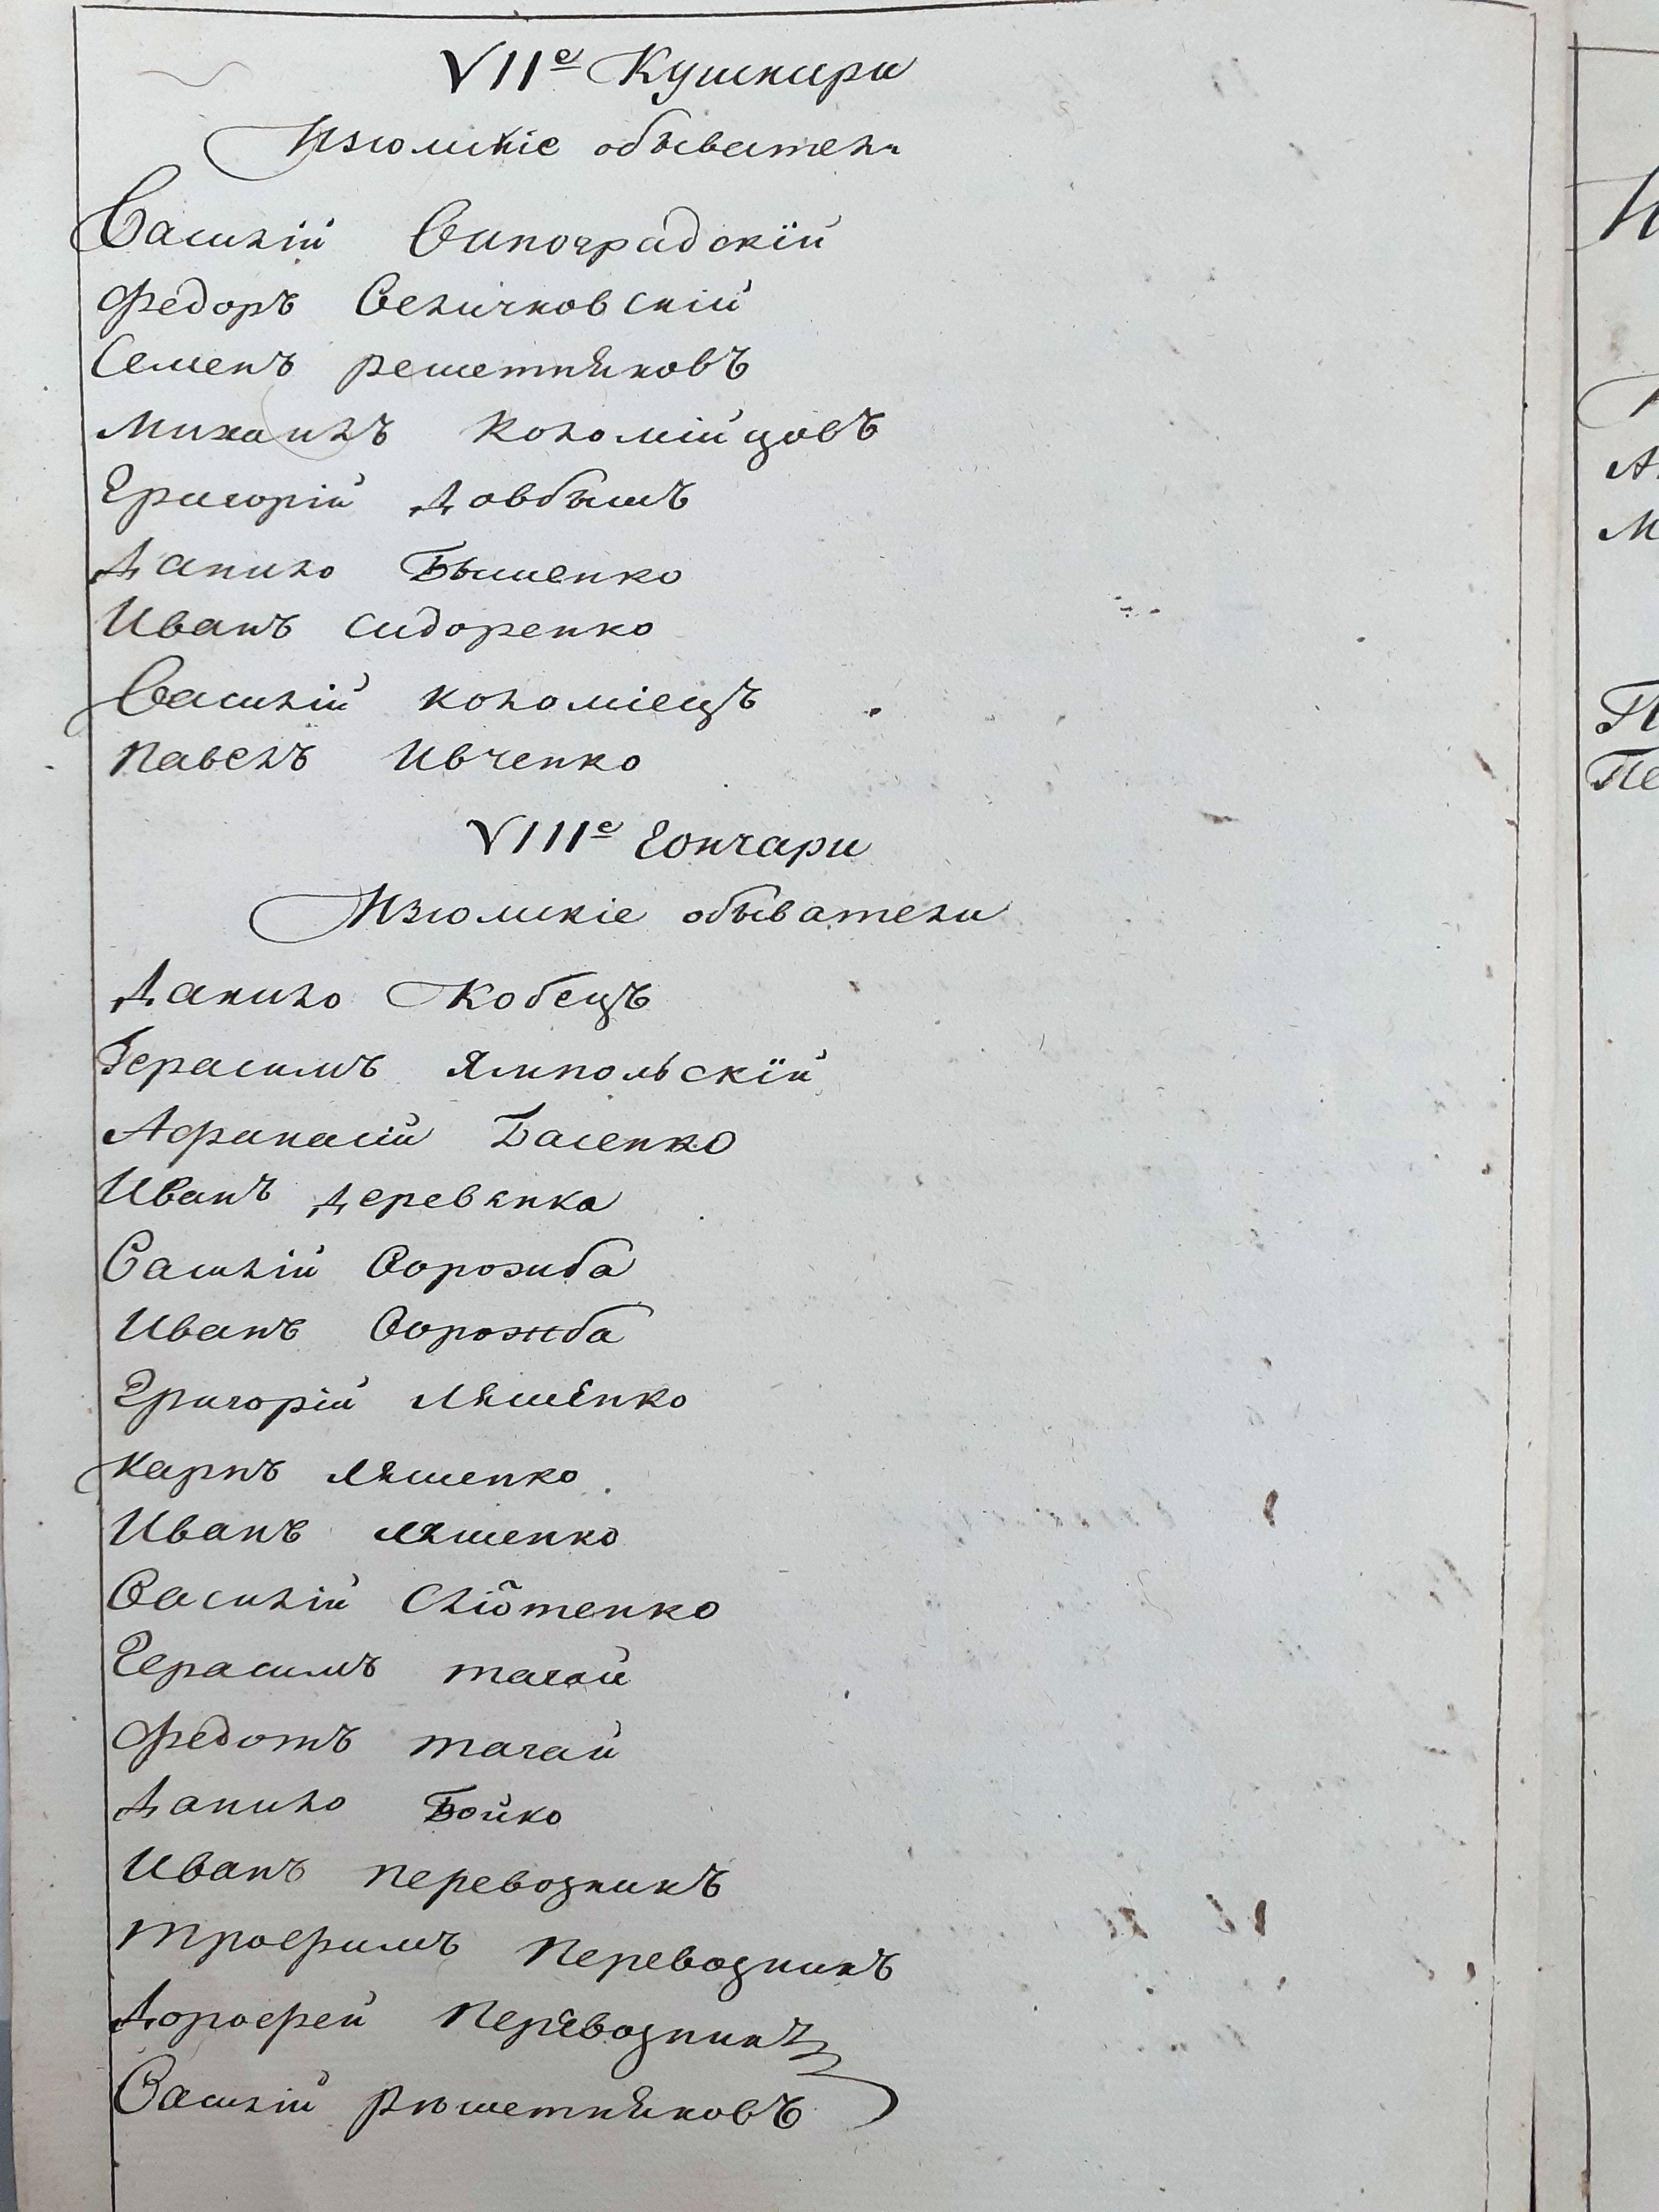 VIIе Кушнири
Изюмскіе обыватели
Василій Виноградскій
Федоръ Величковскій
Семенъ решетняковъ
Михаилъ Коломійцовъ
Григорій Довбышъ
Данило Бышенко
Иванъ Сидоренко
Василій коломіецъ
Павелъ Ивченко
VIIIе Гончари
Изюмскіе обыватели
Данило Кобецъ
Герасимъ Ямпольскій
Афанасій Басенко
Иванъ деревянка
Василій Ворожба
Иванъ Ворожба
Григорій Ляшенко
Карпъ Ляшенко
Иванъ Ляшенко
Василій Слѣотенко
Герасимъ тагай
Федотъ тагай
Данило Бойко
Иванъ перевозникъ
Трофимъ Перевозникъ
Дорофей Перевозникъ
Василій рѣшетняковъ
П
Пе